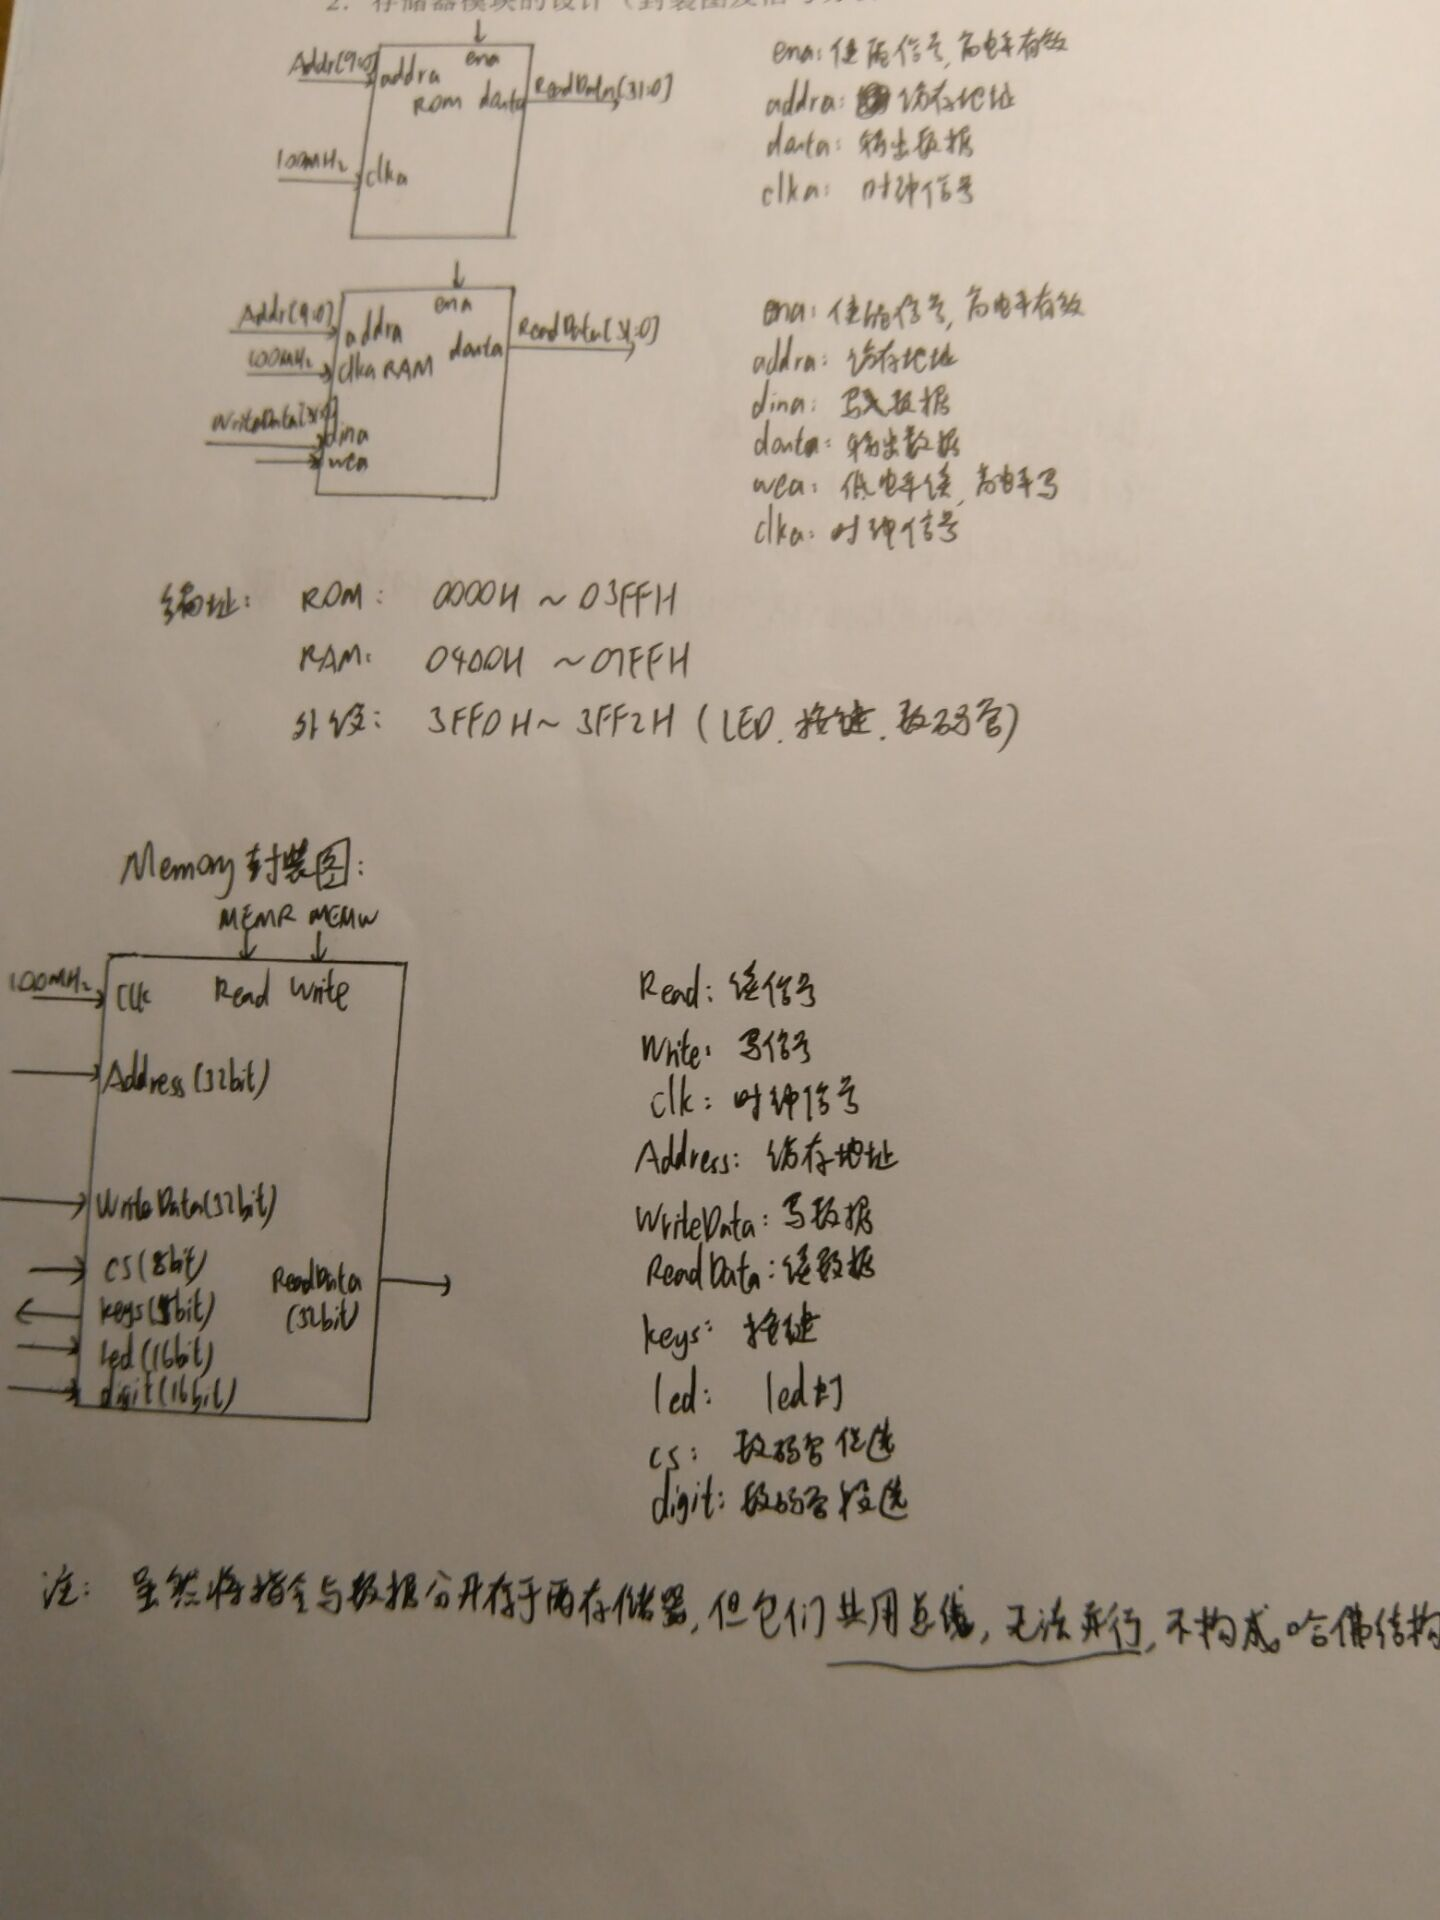 2. 存储器模块的设计（封装图及信号
Addr[9:0] addra ena
ROM douta ReadData[31:0]
100MHz clka
ena: 使能信号, 高电平有效
addra: 访存地址
douta: 输出数据
clka: 时钟信号
Addr[9:0] addra ena
100MHz clka RAM douta ReadData[31:0]
WriteData[31:0] dina
wea
ena: 使能信号, 高电平有效
addra: 访存地址
dina: 写入数据
douta: 输出数据
wea: 低电平读, 高电平写
clka: 时钟信号
编址: ROM: 0000H ~ 03FFH
RAM: 0400H ~ 07FFH
外设: 3FF0H ~ 3FF2H (LED、按键、数码管)
Memory封装图:
MEMR MEMW
100MHz Clk Read Write
Address(32bit)
WriteData(32bit)
cs(8bit)
keys(8bit)
led(16bit)
digit(16bit)
ReadData
(32bit)
Read: 读信号
Write: 写信号
clk: 时钟信号
Address: 访存地址
WriteData: 写数据
ReadData: 读数据
keys: 按键
led: led灯
cs: 数码管位选
digit: 数码管段选
注: 虽然将指令与数据分开存于两存储器, 但它们共用总线, 无法并行, 不构成哈佛结构